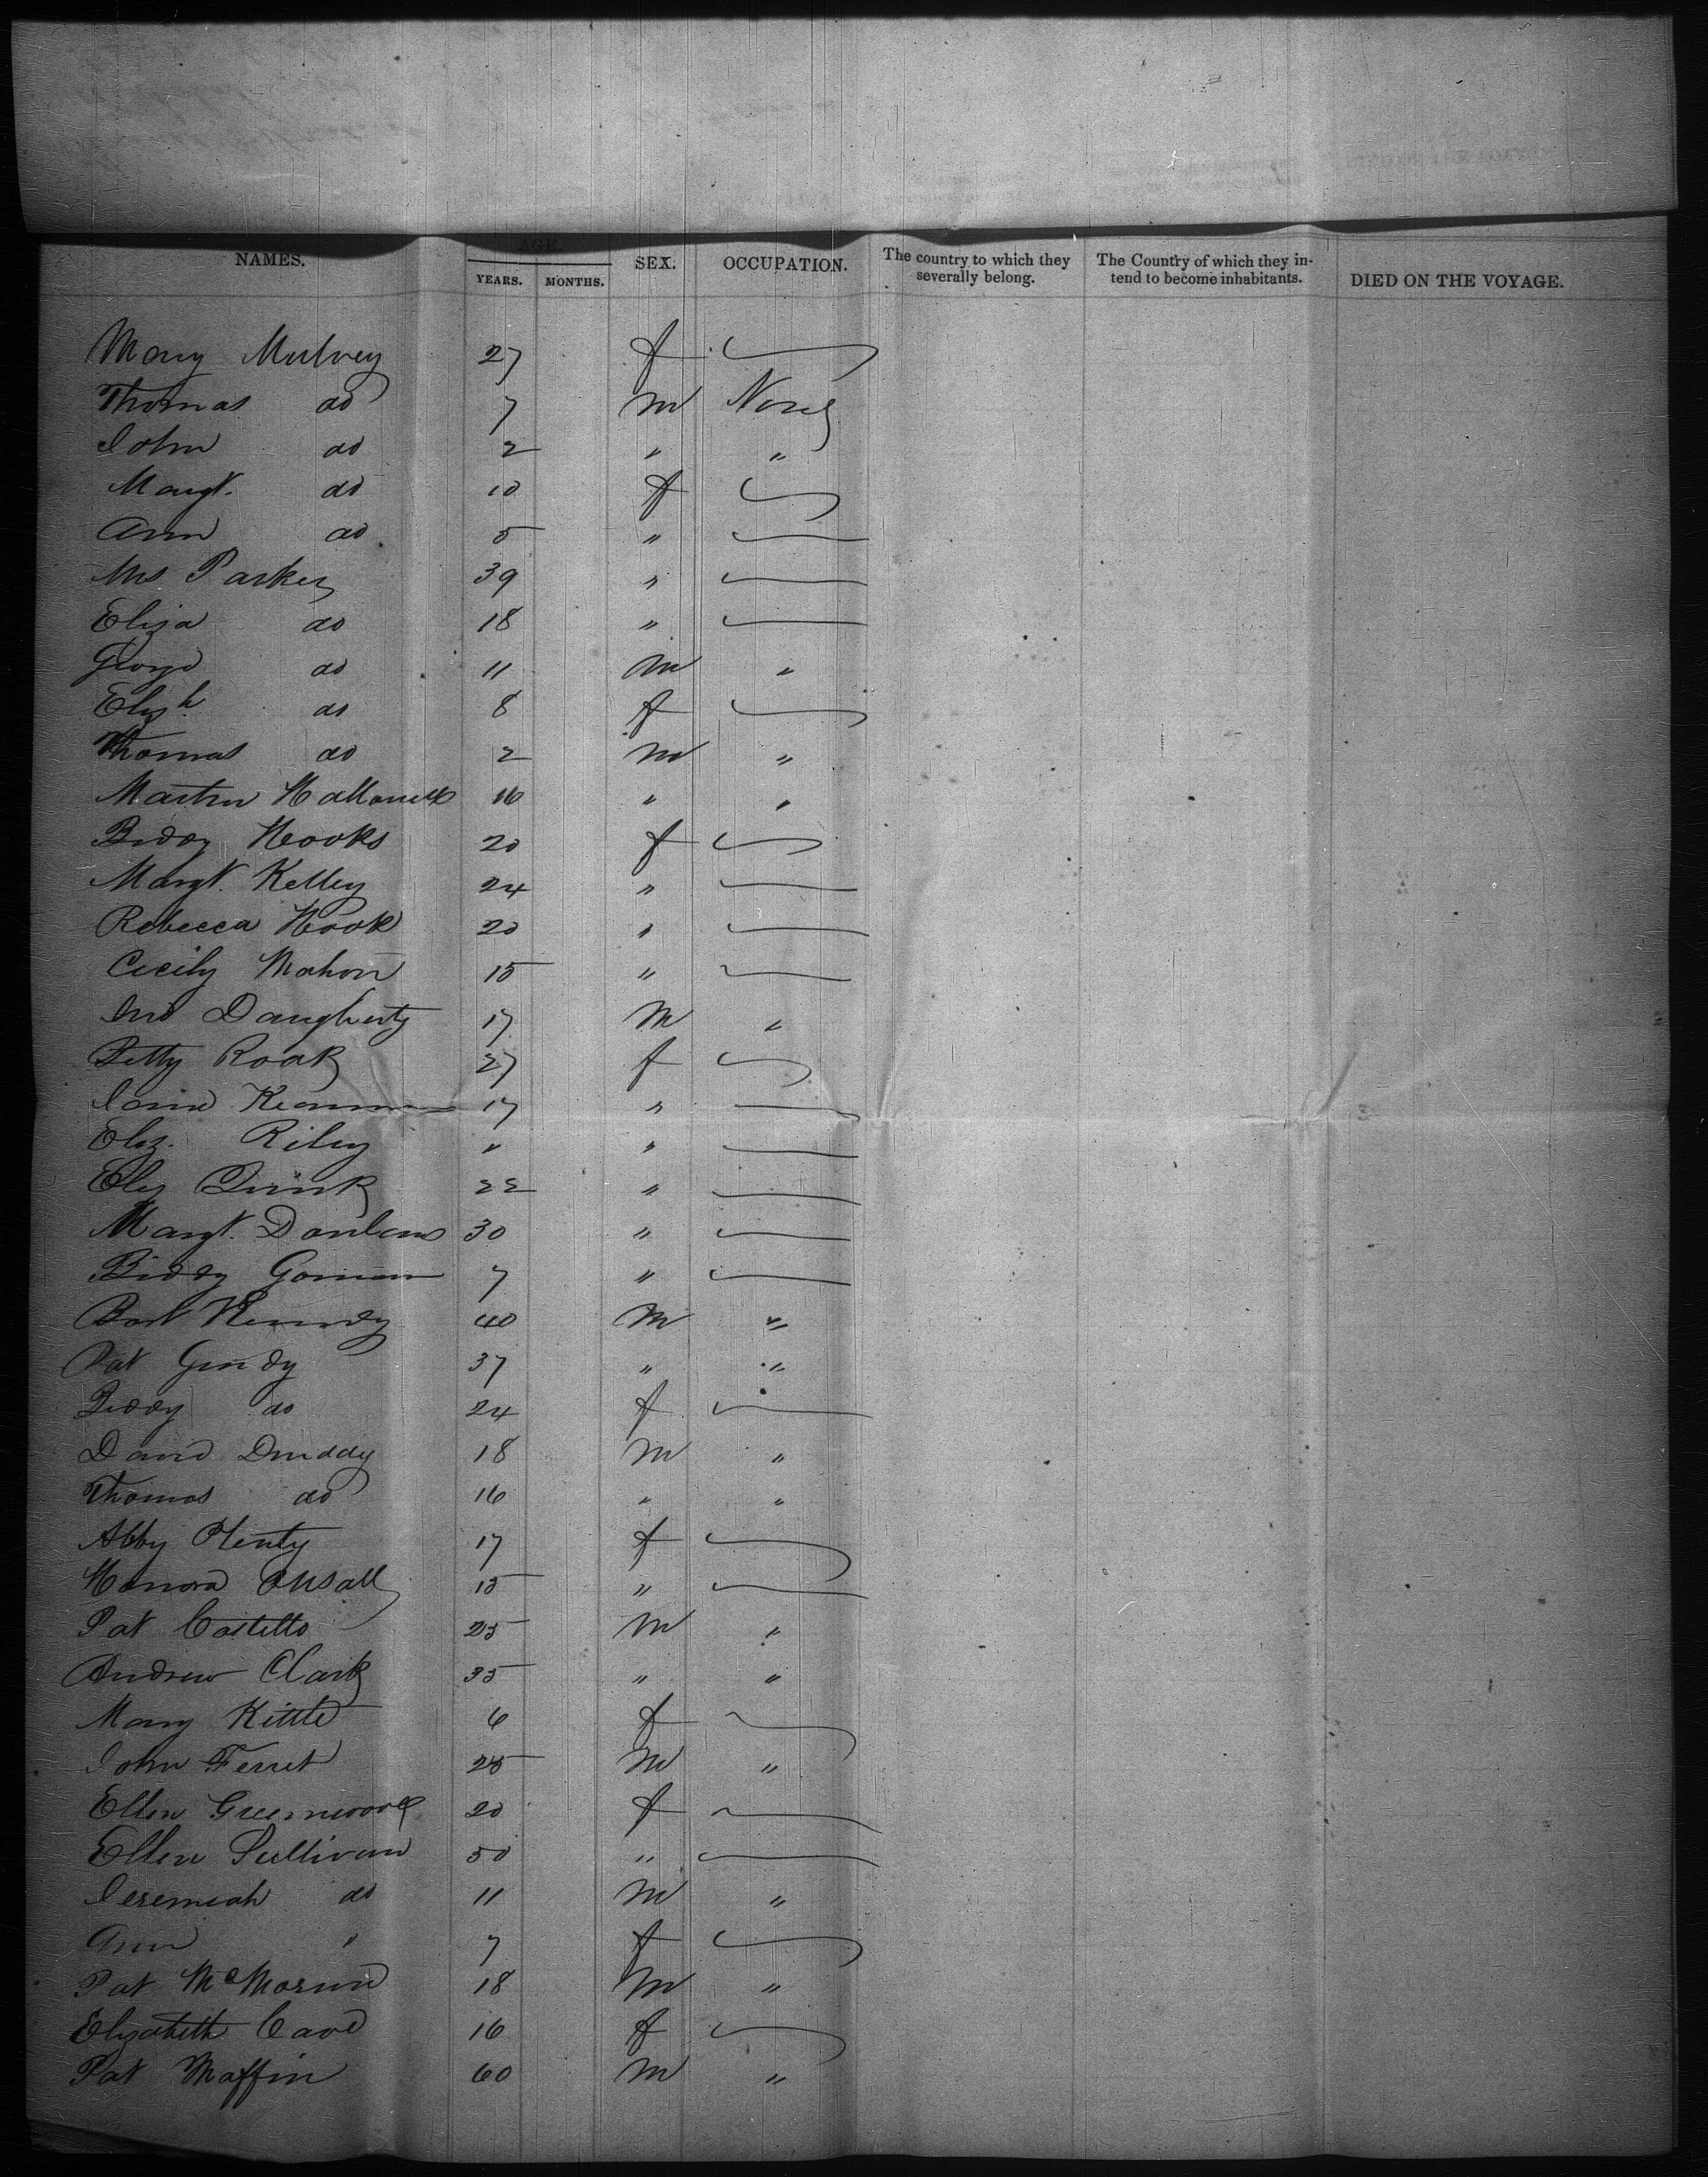 AGE.
NAMES. YEARS. MONTHS. SEX. OCCUPATION. The country to which they severally belong. The Country of which they intend to become inhabitants. DIED ON THE VOYAGE.
Mary Mulvey 27 f
Thomas do 7 m None
John do 2 " "
Margt. do 10 f
Ann do 5 "
Mrs Parker 39 "
Eliza do 18 "
George do 11 m "
Elizh do 8 f
Thomas do 2 m "
Martin 16 " "
Biddy Hooks 20 f
Margt. Kelley 24 "
Rebecca Hook 20 "
Cecily Mahon 15 "
Jno Daugherty 17 m "
Betty Roark 27 f
Keanan 17 "
Eliz. Riley " "
Eliz Quirk 22 "
Margt. Donlan 30 "
Biddy Gorman 7 "
Kennedy 40 m "
Pat Grudy 37 " "
Biddy do 24 f
David Druddy 18 m "
Thomas do 16 " "
Abby Plenty 17 f
Honora 15 "
Pat Costello 25 m "
Andrew Clark 35 " "
Mary Kittle 6 f
John Ferret 25 m "
Ellen Greenwood 20 f
Ellen Sullivan 50 "
Jeremiah do 11 m "
Ann " 7 f
Pat McMorun 18 m "
Elizabeth Cave 16 f
Pat Maffin 60 m "